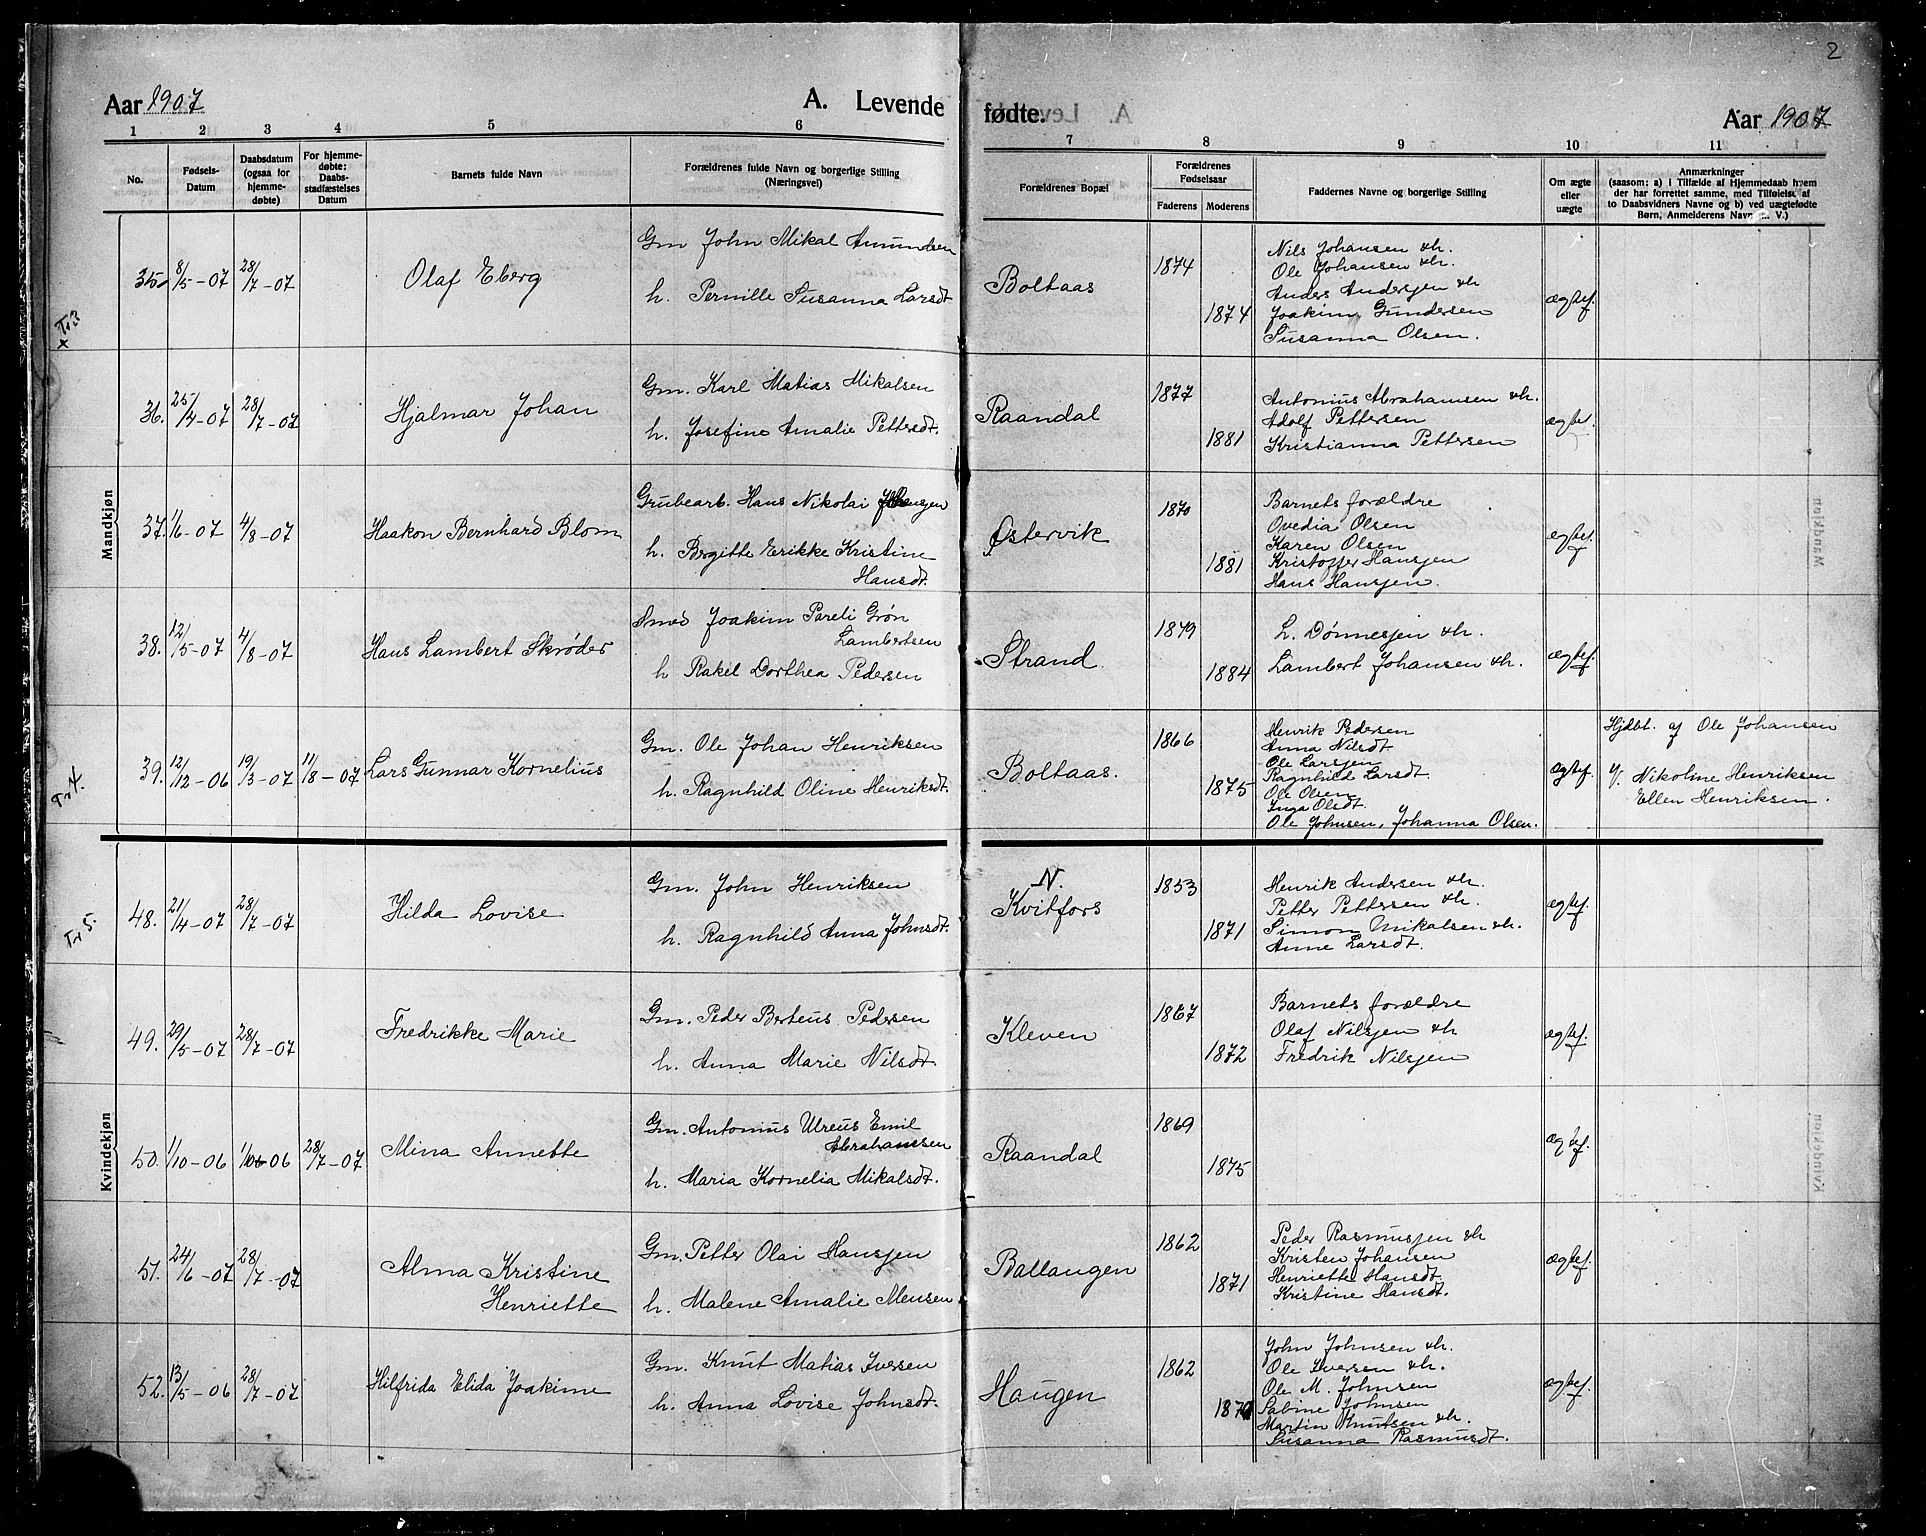 2
Aar 1907 A. Levende fødte. Aar 1907
1 2 3 4 5 6 7 8 9 10 11
No.
Fødsels-
Datum
Daabsdatum
(ogsaa for
hjemme-
døbte)
For hjemme-
døbte:
Daabs-
stadfæstelses
Datum
Barnets fulde Navn
Forældrenes fulde Navn og borgerlige Stilling
(Næringsvei)
Forældrenes Bopæl
Forældrenes
Fødselsaar
Faderens Moderens
Faddernes Navne og borgerlige Stilling
Om ægte
eller
uægte
Anmærkninger
(saasom: a) i Tilfælde af Hjemmedaab hvem
der har forrettet samme, med Tilføielse af
to Daabsvidners Navne og b) ved uægtefødte
Børn, Anmelderens Navn m. V.)
Mandkjøn
Tr3
x
35. 8/5-07 28/7-07 Olaf Eberg
Gm John Mikal Amundsen
h. Pernille Susanna Larsdt
Boltaas 1874 1874
Nils Johansen &h.
Ole Johansen &h.
Anders Andersjen &h
Joakim Gundersen
Susanna Olsen.
ægtef.
36. 25/4-07 28/7-07 Hjalmar Johan
Gm. Karl Matias Mikalsen
h. Josefine Amalie Pettersdt.
Raandal 1877 1881
Antonius Abrahamsen &h.
Adolf Pettersen
Kristianna Pettersen
ægtef.
37. 1/6-07 4/8-07 Haakon Bernhard Blom
Grubearb. Hans Nikolai
h. Bergitte Erikke Kristine
Hansdt.
Østervik 1870 1881
Barnets forældre
Ovedia Olsen
Karen Olsen
Kristoffer Hansjen
Hans Hansjen.
ægtef.
38. 12/5-07 4/8-07 Hans Lambert Skrøder
Smed Joakim Pareli Grøn
Lambertsen
h Rakel Dorthea Pedersen
Strand. 1879 1884
L. Dønnesjen &h.
Lambert Johansen &h.
ægtef.
Tr4.
39. 12/12-06 19/3-07 11/8-07 Lars Gunnar Kornelius
Gm. Ole Johan Henriksen
h. Ragnhild Oline Henriksdt.
Boltaas. 1866 1875
Henrik Pedersen
Anna Nilsdt
Ole Larsjen
Ragnhild Larsdt.
Ole Olsen
Inga Olsdt.
Ole Johnsen, Johanna Olsen.
ægtef.
Hjdbt. af Ole Johansen
v. Nikoline Henriksen
Ellen Henriksen.
Kvindekjøn
Tr5.
48. 21/4-07 28/7-07 Hilda Lovise
Gm. John Henriksen
h. Ragnhild Anna Johnsdt.
N.
Kvitfors 1853 1871
Henrik Andersen &h.
Petter Pettersen &h.
Simon Mikalsen &h.
Anne Larsdt.
ægtef
49. 29/5-07 28/7-07 Fredrikke Marie
Gm. Peder Berteus Pedersen
h. Anna Marie Nilsdt.
Kleven 1867 1872
Barnets forældre
Olaf Nilsjen &h
Fredrik Nilsjen
ægtef.
50. 1/10-06 28/7-07 Mina Annette
Gm. Antonius Ulreus Emil
Abrahamsen
h. Maria Kornelia Mikalsdt.
Raandal 1869 1875
ægtef.
51. 24/6-07 28/7-07 Alma Kristine
Henriette
Gm. Petter Olai Hansjen
h. Malene Amalie Mensen
Ballangen 1862 1871
Peder Rasmussjen &h
Kristen Johansen
Henriette Hansdt.
Kristine Hansdt.
ægtef.
52. 13/5-06 28/7-07 Hilfrida Elida Joakime
Gm. Knut Matias Iversen
h. Anna Lovise Johnsdt.
Haugen 1862
John Johnsen &h.
Ole Iversen &h.
Ole M. Johnsen
Sabine Johnsen
Martin Knutsen &h.
Susanna Rasmusdt.
ægtef.